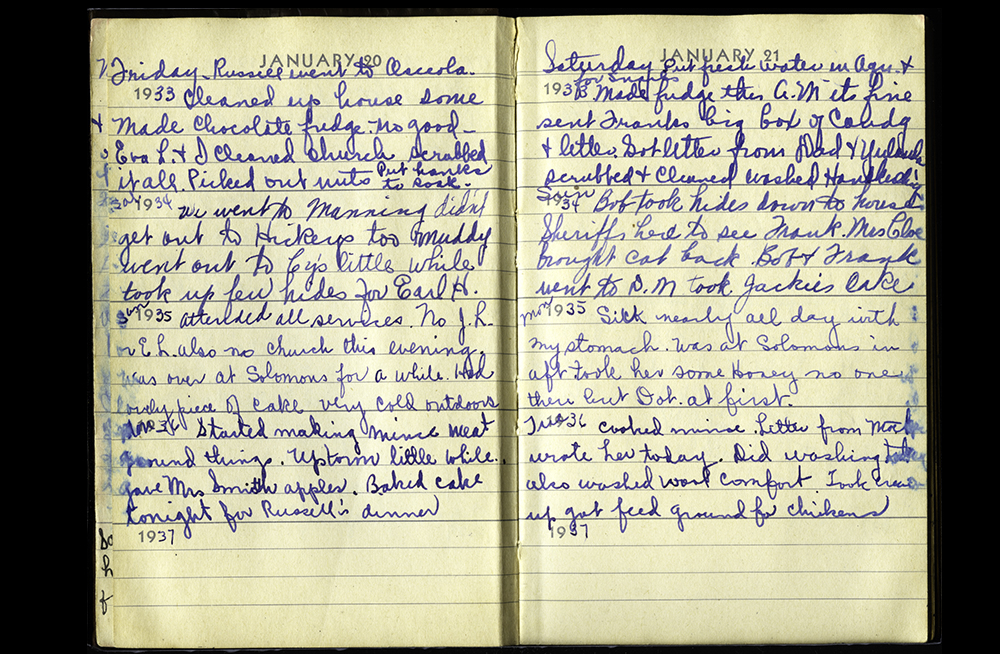 JANUARY 20
Friday - Russell went to Osceola.
1933 Cleaned up house some
Made Chocolate fudge - no good -
Eva L. & I Cleaned Church scrubbed
it all. Picked out nuts Put hanks
to soak.
Sat 1934 we went to Manning didn't
get out to Hickeys too muddy
went out to Cy's little while
took up few hides for Earl H.
Sun 1935 attended all services. No J.L.
or E.L. also no church this evening.
was over at Solomons for a while. Had
lovely piece of cake very cold outdoors
Mon 1936 Started making mince meat
ground things. Upstorm little while.
gave Mrs Smith apples. Baked cake
tonight for Russell's dinner
1937
So
h
f
JANUARY 21
Saturday Put fresh water in Aqu. &
for Snails
1933 Made fudge this A.M its fine
sent Franks big box of Candy
& letter. Got letter from Dad &
scrubbed & Cleaned washed
Sun 1934 Bob took hides down to house
Sheriffs here to see Frank. Mrs
brought cat back. Bob & Frank
went to D.M took Jackie's Cake
Mon 1935 Sick nearly all day with
my stomach. was at Solomons in
aft Took her some Honey no one
there but Dot. at first.
Tues 1936 cooked mince. Letter from
wrote her today. Did washing
also washed wool comfort Took
up got feed ground for chickens
1937